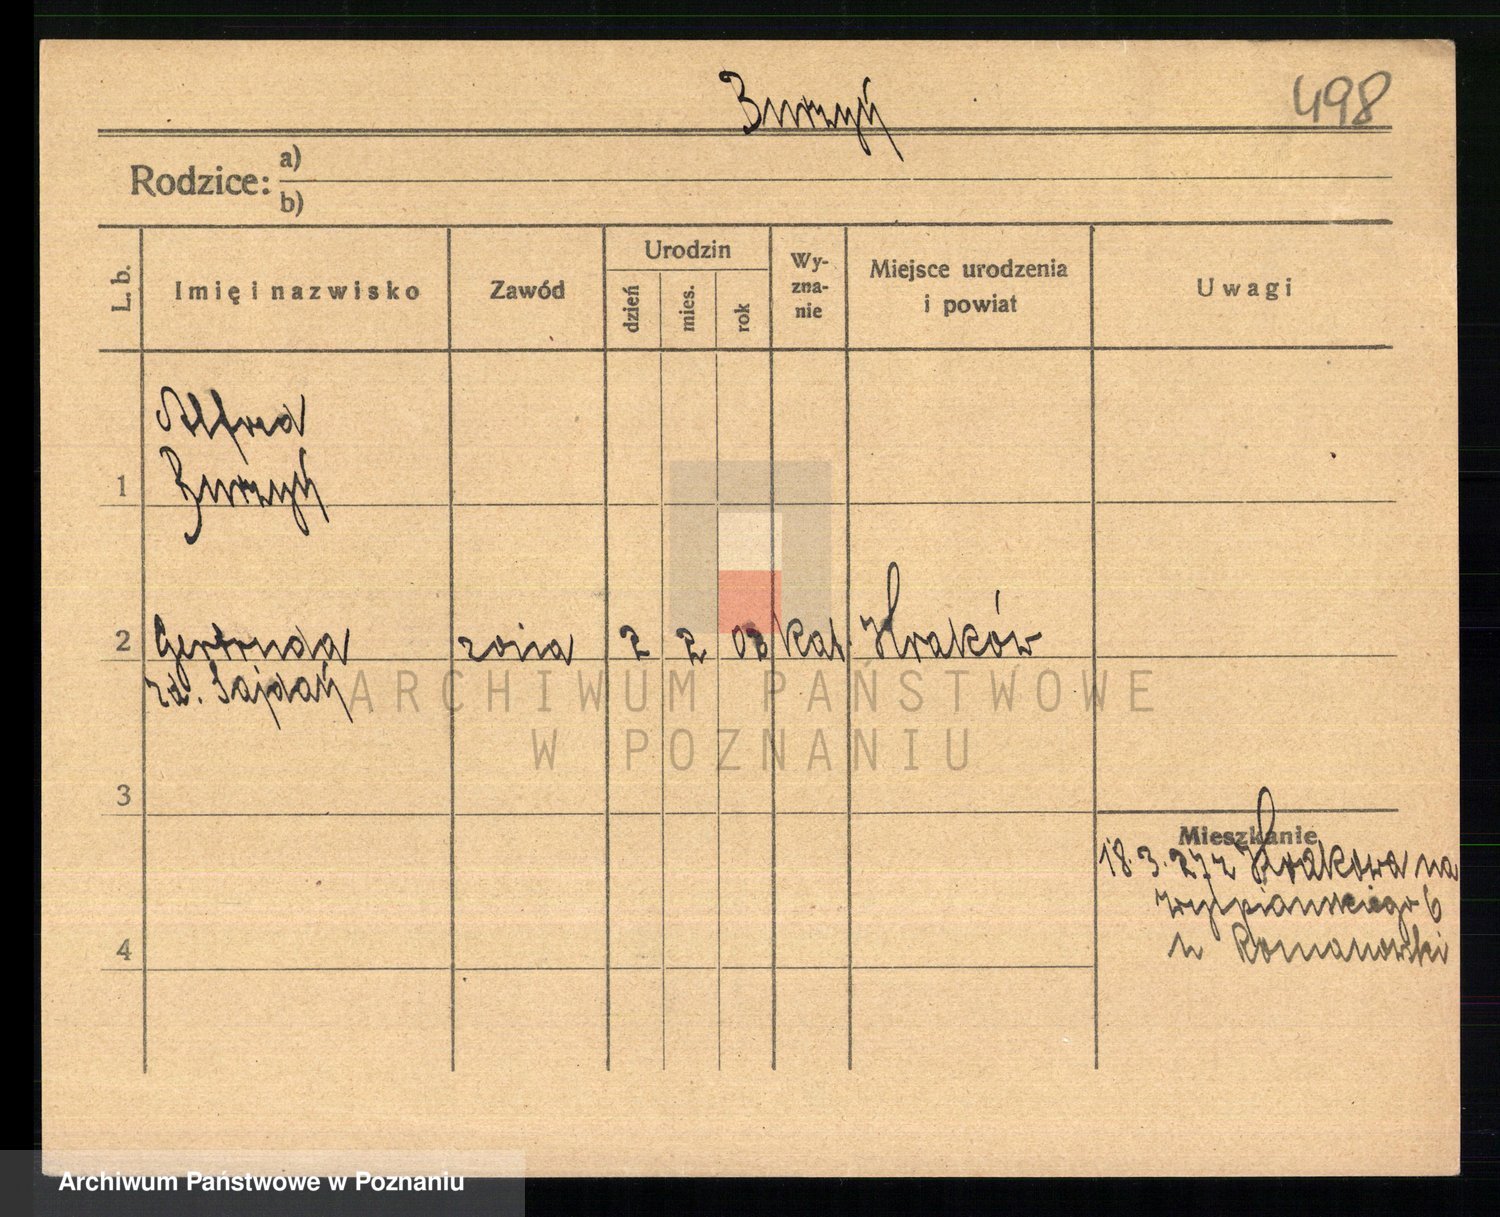 Burzyń
498
Rodzice: a)
b)
L. b.
Imię i nazwisko
Zawód
Urodzin
dzień
mies.
rok
Wy-
zna-
nie
Miejsce urodzenia
i powiat
Uwagi
Alfred
1 Burzyń
2 Gertruda żona 2 2 02 kat. Kraków
zd. Sajdań
ARCHIWUM PAŃSTWOWE
W POZNANIU
3
Mieszkanie
18.3.27 z Krakowa na
Wyspiańskiego 6
u Romanowski
4
Archiwum Państwowe w Poznaniu